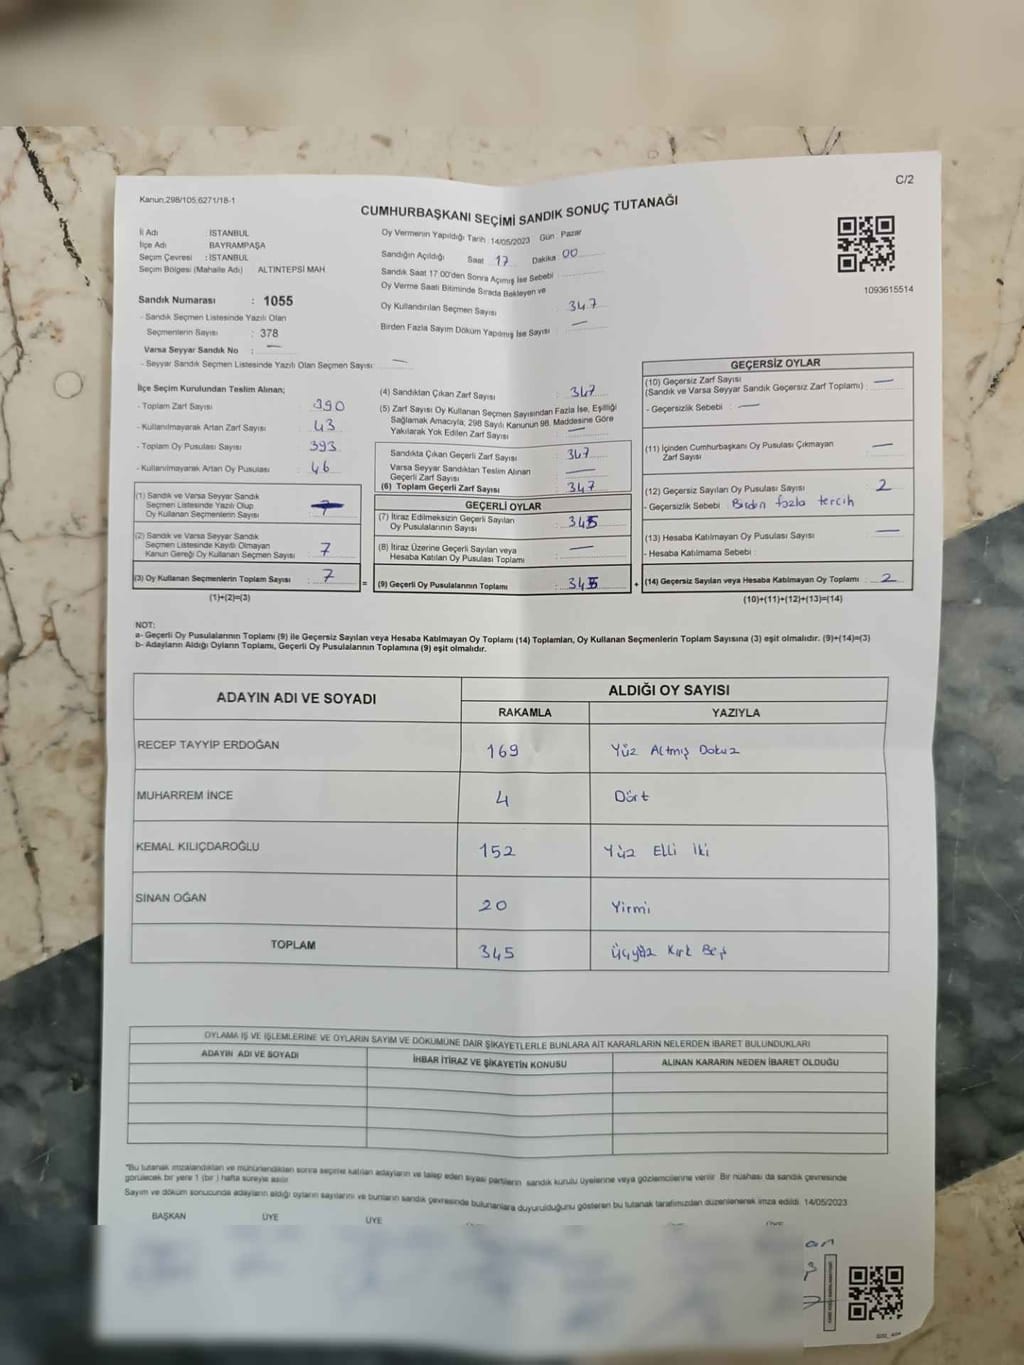 C/2
Kanun,298/105,6271/18-1
CUMHURBAŞKANI SEÇİMİ SANDIK SONUÇ TUTANAĞI
İl Adı : İSTANBUL
İlçe Adı BAYRAMPAŞA
Seçim Çevresi : İSTANBUL
Seçim Bölgesi (Mahalle Adı) ALTINTEPSİ MAH.
Oy Vermenin Yapıldığı Tarih :14/05/2023 Gün : Pazar
Sandığın Açıldığı Saat 17 Dakika 00
Sandık Saat 17.00'den Sonra Açımış İse Sebebi :
Oy Verme Saati Bitiminde Sırada Bekleyen ve
Oy Kullandırılan Seçmen Sayısı : 347
Birden Fazla Sayım Döküm Yapılmış İse Sayısı : —
1093615514
Sandık Numarası : 1055
- Sandık Seçmen Listesinde Yazılı Olan
Seçmenlerin Sayısı : 378
Varsa Seyyar Sandık No : —
- Seyyar Sandık Seçmen Listesinde Yazılı Olan Seçmen Sayısı: —
İlçe Seçim Kurulundan Teslim Alınan;
- Toplam Zarf Sayısı 390
- Kullanılmayarak Artan Zarf Sayısı : 43
- Toplam Oy Pusulası Sayısı : 393
- Kullanılmayarak Artan Oy Pusulası : 46
(1) Sandık ve Varsa Seyyar Sandık
Seçmen Listesinde Yazılı Olup
Oy Kullanan Seçmenlerin Sayısı :
(2) Sandık ve Varsa Seyyar Sandık
Seçmen Listesinde Kayıtlı Olmayan
Kanun Gereği Oy Kullanan Seçmen Sayısı : 7
(3) Oy Kullanan Seçmenlerin Toplam Sayısı : 7
(1)+(2)=(3)
=
(4) Sandıktan Çıkan Zarf Sayısı : 347
(5) Zarf Sayısı Oy Kullanan Seçmen Sayısından Fazla İse, Eşitliği
Sağlamak Amacıyla; 298 Sayılı Kanunun 98. Maddesine Göre
Yakılarak Yok Edilen Zarf Sayısı : —
Sandıkta Çıkan Geçerli Zarf Sayısı : 347
Varsa Seyyar Sandıktan Teslim Alınan
Geçerli Zarf Sayısı : —
(6) Toplam Geçerli Zarf Sayısı : 347
GEÇERLİ OYLAR
(7) İtiraz Edilmeksizin Geçerli Sayılan
Oy Pusulalarının Sayısı : 345
(8) İtiraz Üzerine Geçerli Sayılan veya
Hesaba Katılan Oy Pusulası Toplamı : —
(9) Geçerli Oy Pusulalarının Toplamı : 345
+
GEÇERSİZ OYLAR
(10) Geçersiz Zarf Sayısı
(Sandık ve Varsa Seyyar Sandık Geçersiz Zarf Toplamı) : —
- Geçersizlik Sebebi : —
(11) İçinden Cumhurbaşkanı Oy Pusulası Çıkmayan
Zarf Sayısı : —
(12) Geçersiz Sayılan Oy Pusulası Sayısı : 2
- Geçersizlik Sebebi : Birden fazla tercih
(13) Hesaba Katılmayan Oy Pusulası Sayısı : —
- Hesaba Katılmama Sebebi :
(14) Geçersiz Sayılan veya Hesaba Katılmayan Oy Toplamı : 2
(10)+(11)+(12)+(13)=(14)
NOT:
a- Geçerli Oy Pusulalarının Toplamı (9) ile Geçersiz Sayılan veya Hesaba Katılmayan Oy Toplamı (14) Toplamları, Oy Kullanan Seçmenlerin Toplam Sayısına (3) eşit olmalıdır. (9)+(14)=(3)
b- Adayların Aldığı Oyların Toplamı, Geçerli Oy Pusulalarının Toplamına (9) eşit olmalıdır.
ADAYIN ADI VE SOYADI
ALDIĞI OY SAYISI
RAKAMLA YAZIYLA
RECEP TAYYİP ERDOĞAN 169 Yüz Altmış Dokuz
MUHARREM İNCE 4 Dört
KEMAL KILIÇDAROĞLU 152 Yüz Elli İki
SİNAN OĞAN 20 Yirmi
TOPLAM 345 Üçyüz Kırk Beş
OYLAMA İŞ VE İŞLEMLERİNE VE OYLARIN SAYIM VE DÖKÜMÜNE DAİR ŞİKAYETLERLE BUNLARA AİT KARARLARIN NELERDEN İBARET BULUNDUKLARI
ADAYIN ADI VE SOYADI İHBAR İTİRAZ VE ŞİKAYETİN KONUSU ALINAN KARARIN NEDEN İBARET OLDUĞU
*Bu tutanak imzalandıktan ve mühürlendikten sonra seçime katılan adayların ve talep eden siyasi partilerin sandık kurulu üyelerine veya gözlemcilerine verilir. Bir nüshası da sandık çevresinde
görülecek bir yere 1 (bir ) hafta süreyle asılır.
Sayım ve döküm sonucunda adayların aldığı oyların sayılarını ve bunların sandık çevresinde bulunanlara duyurulduğunu gösteren bu tutanak tarafımızdan düzenlenerek imza edildi. 14/05/2023
BAŞKAN ÜYE ÜYE